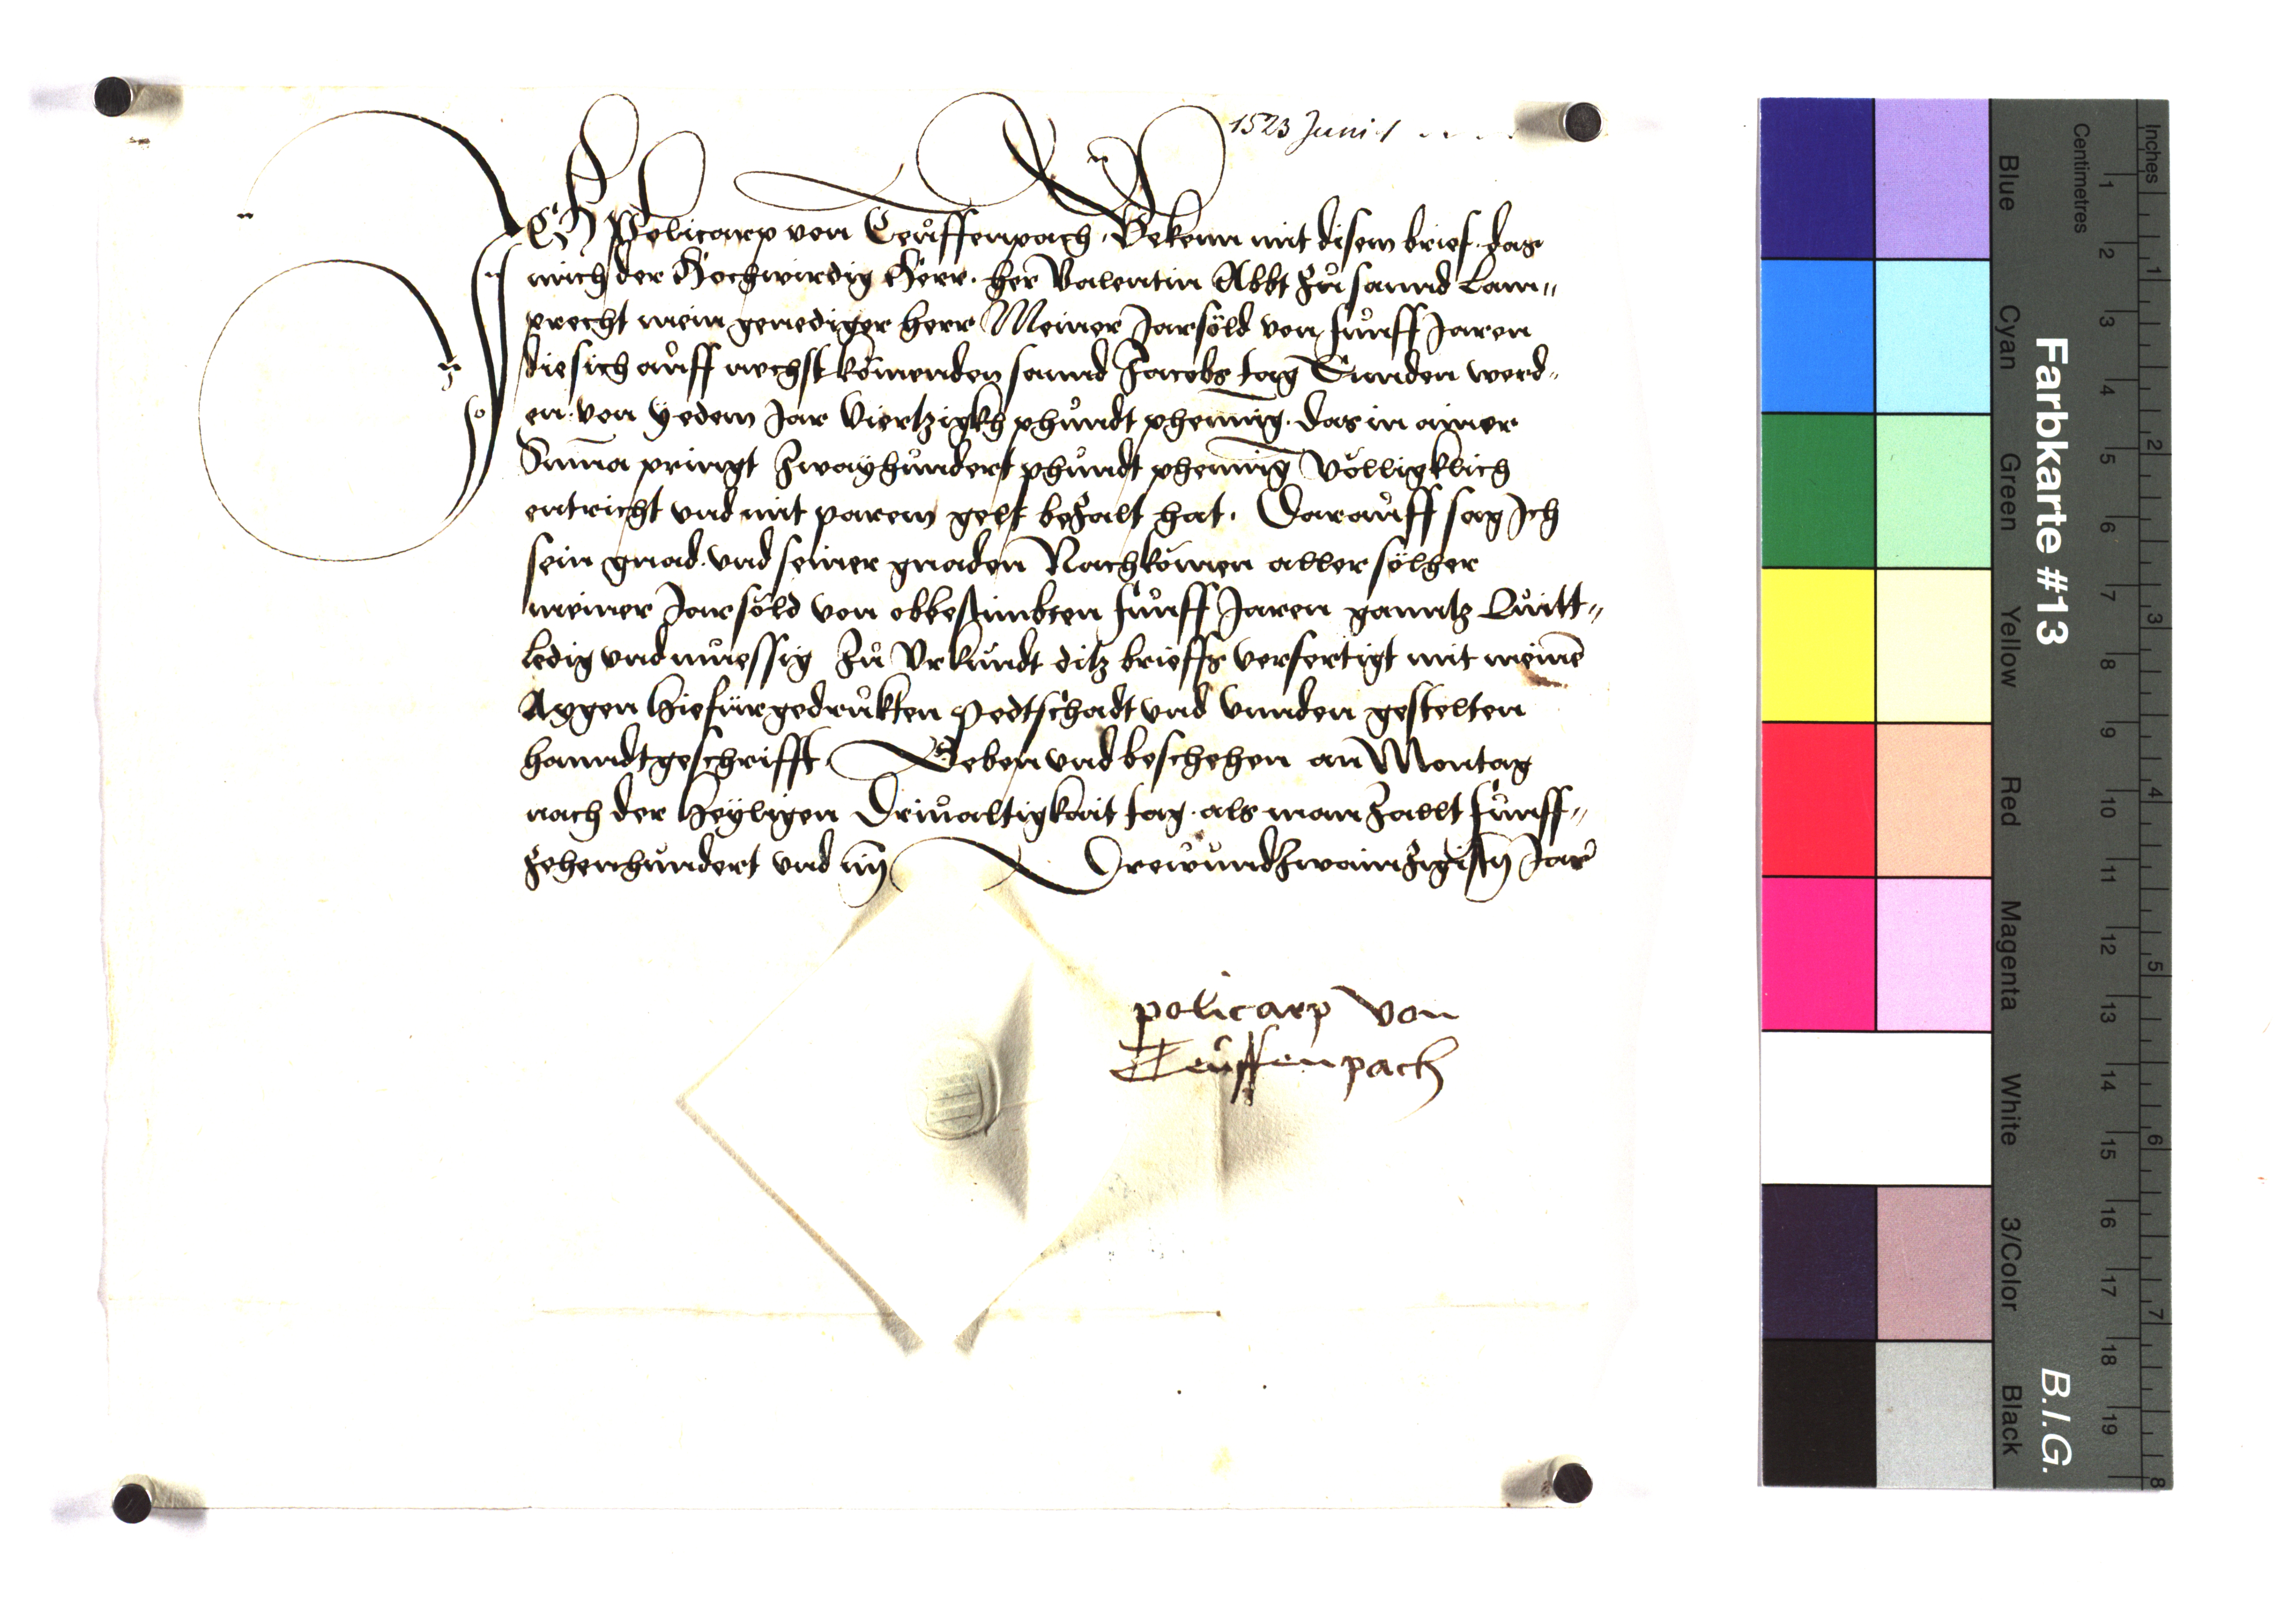 1523 Juni 1 . . . .
ICH Policarp von Teuffenpach. Bekenn mit disem brief. das
mich der Hochwirdig Herr. her Valentin Abbt zu sannd Lam=
precht mein genediger herr Meiner Jarsöld von funff Jaren
die sich auff nechst komenden sannd Jacobs tag Ennden werd=
en. von yedem Jar Viertzigkh phundt phening. das in ainer
Suma pringt Zwayhundert phundt phening Völligklich
entricht vnd mit parem gelt bezalt hat. Darauff sag Ich
sein gnad. vnd seiner gnaden Nachkomen aller sölher
meiner Jarsöld von obbestimbten funff Jaren ganntz Quitt=
ledig vnd muessig Zu Vrkundt ditz brieffs verfertigt mit meine
Aygen hiefürgedrukten Pedtschadt vnd vnnden gestelten
hanndtgeschrifft. Geben vnd beschehen an Montag
nach der heyligen Driualtigkait tag. als man Zallt funff=
zehenhundert vnd im Drewundzwainzigistn Jar
policarp von
Teuffenpach
Farbkarte #13
B.I.G.
Inches
Centimetres
Blue
Cyan
Green
Yellow
Red
Magenta
White
3/Color
Black
1 2 3 4 5 6 7 8 9 10 11 12 13 14 15 16 17 18 19
1 2 3 4 5 6 7 8